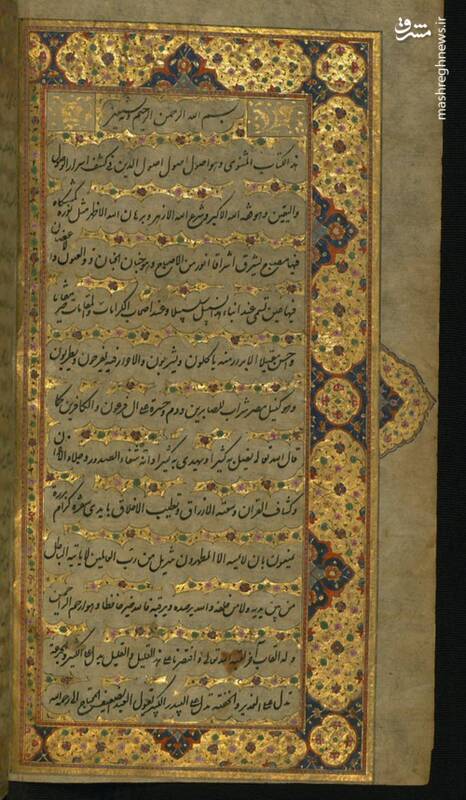 بسم الله الرحمن الرحیم وبه
هذا کتاب المثنوی وهو اصول اصول اصول الدین فی کشف اسرار الوصول
والیقین وهو فقه الله الاکبر و شرع الله الازهر و برهان الله الاظهر مثل نوره کمشکاة
فیها مصباح یشرق اشراقا انور من الاصباح وهو جنان الجنان ذو العیون والاغصان
فیها عین تسمی عند ابناء السبیل سلسبیلا وعند اصحاب الکرامات والمقامات خیر مقاما
واحسن مقیلا الابرار منه یاکلون ویشربون والاحرار منه یفرحون ویطربون
وهو کنیل مصر شراب للصابرین ودم وحسرة علی ال فرعون والکافرین کما
قال الله تعالی یضل به کثیرا ویهدی به کثیرا وانه شفاء الصدور وجلاء الاحزان
وکشاف القران وسعة الارزاق وتطییب الاخلاق بایدی سفرة کرام بررة
یمنعون بان لا یمسه الا المطهرون تنزیل من رب العالمین لا یاتیه الباطل
من بین یدیه ولا من خلفه والله یرصده ویرقبه فالله خیر حافظا وهو ارحم الراحمین
وله القاب اخر لقبه الله تعالی واختصرنا علی هذا القلیل والقلیل یدل علی الکثیر والجرعة
تدل علی الغدیر والحفنة تدل علی البیدر الکبیر یقول العبد الضعیف المحتاج الی رحمة الله
مشرق
mashreghnews.ir